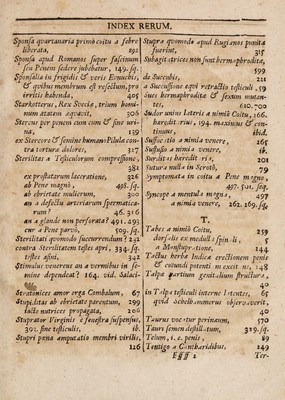 INDEX RERUM.
Sponsa quartanaria primo coitu a febre
liberata, 291
Sponsa apud Romanos super fascinum
seu Penem sedere jubebatur, 149. sq.
Sponsalia in frigidis & veris Eunuchis,
& quibus membrum est resectum, pro
irritis habenda, 405
Starkotterus, Rex Sueciæ, trium homi-
num ætatem æquavit, 306
Stercus per penem cum cum & sine uri-
na, 139
ex Stercore & semine humano Pilula con-
tra tortura dolores, 317
Sterilitas a Testiculorum compressione,
382
ex prostatarum laceratione, 326
ab Pene magno, 498. sq.
ab obrietate mulierum, 300
an a defectu arteriarum spermatica-
rum? 46. 316
an a glande non perforata? 491. 493
cur a Pene parvo, 509. sq.
Sterilitati quomodo succurrendum? 242
contra Sterilitatem testes apri, 334. sq.
testes asini, 342
Stimulus venereus an a terminis in se-
mine dependeat? 164. vid. Salaci-
tas.
Stratonices amor erga Combalum, 67
Stupiditas ab obrietate parentum, 299
facta nutrices propagata, 206
Stuprator Virginis e fenestra suspensus,
391. sine testiculis, ib.
Stupri pena amputatio membri virilis,
126
Stupra quomodo apud Rugianos punita
fuerint, 315
Subagitatrices non sunt hermaphroditæ,
599
de Succubis, 211
a Succussione equi retractio testiculi, 19
Sues hermaphroditæ & sexum mutan-
tes, 610. 700
Sudor unius lateris a nimio Coitu, 166.
hæreditarius, 194. maximus & con-
tinuus, ibid.
Suffocatio a nimia venere, 165
Suffusio a nimia venere, ib.
Surditas hæreditaris, 201
Sutura nulla in Scroto, 79
Symptomata in coitu a Pene magno,
497. 501. seq.
Syncope a mentula magna, 497
a nimia venere, 162. 169. sq.
T.
Tabes a nimio Coitu, 259
dorsalis ex medulla spinali, 5
a Abstupratione, 144
Tactus herba Indica erectionem penis
& coeundi potentiam excitans, 148
Talpæ partium genitalium structura,
40
in Talpa testiculi interne latentes, 65
quid Schelhammerus observaverit,
40
Taurus vocatur perinæum, 570
Tauri semen destillatum, 319. sq.
Telum, i. e. penis, 89
Tentigo a Cantharidibus, 149
Ffff 2
Ter-